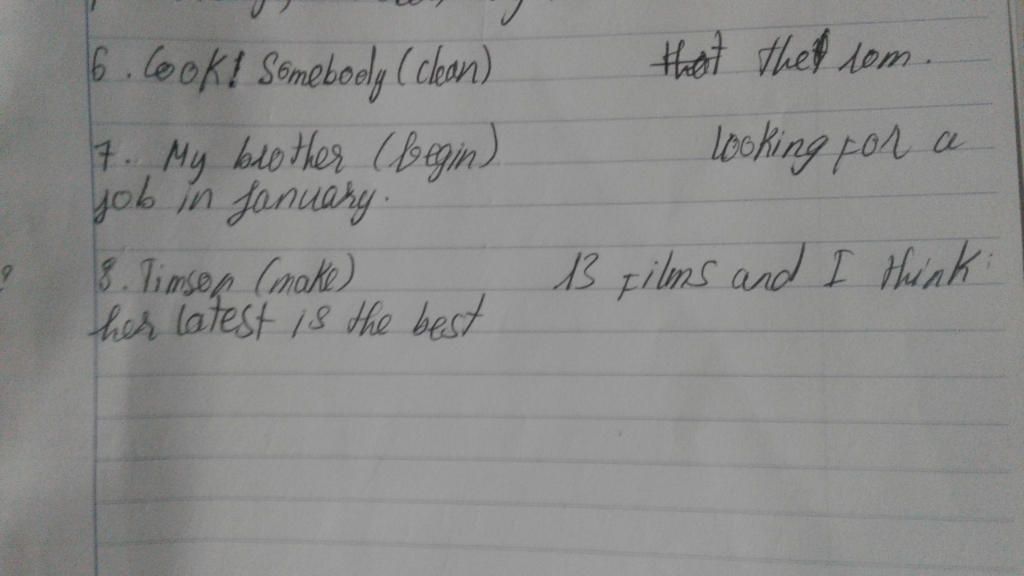 6. Look! Somebody (clean) that the rom.
7. My brother (begin) looking for a
job in January.
8. Timson (make) 13 films and I think
her latest is the best